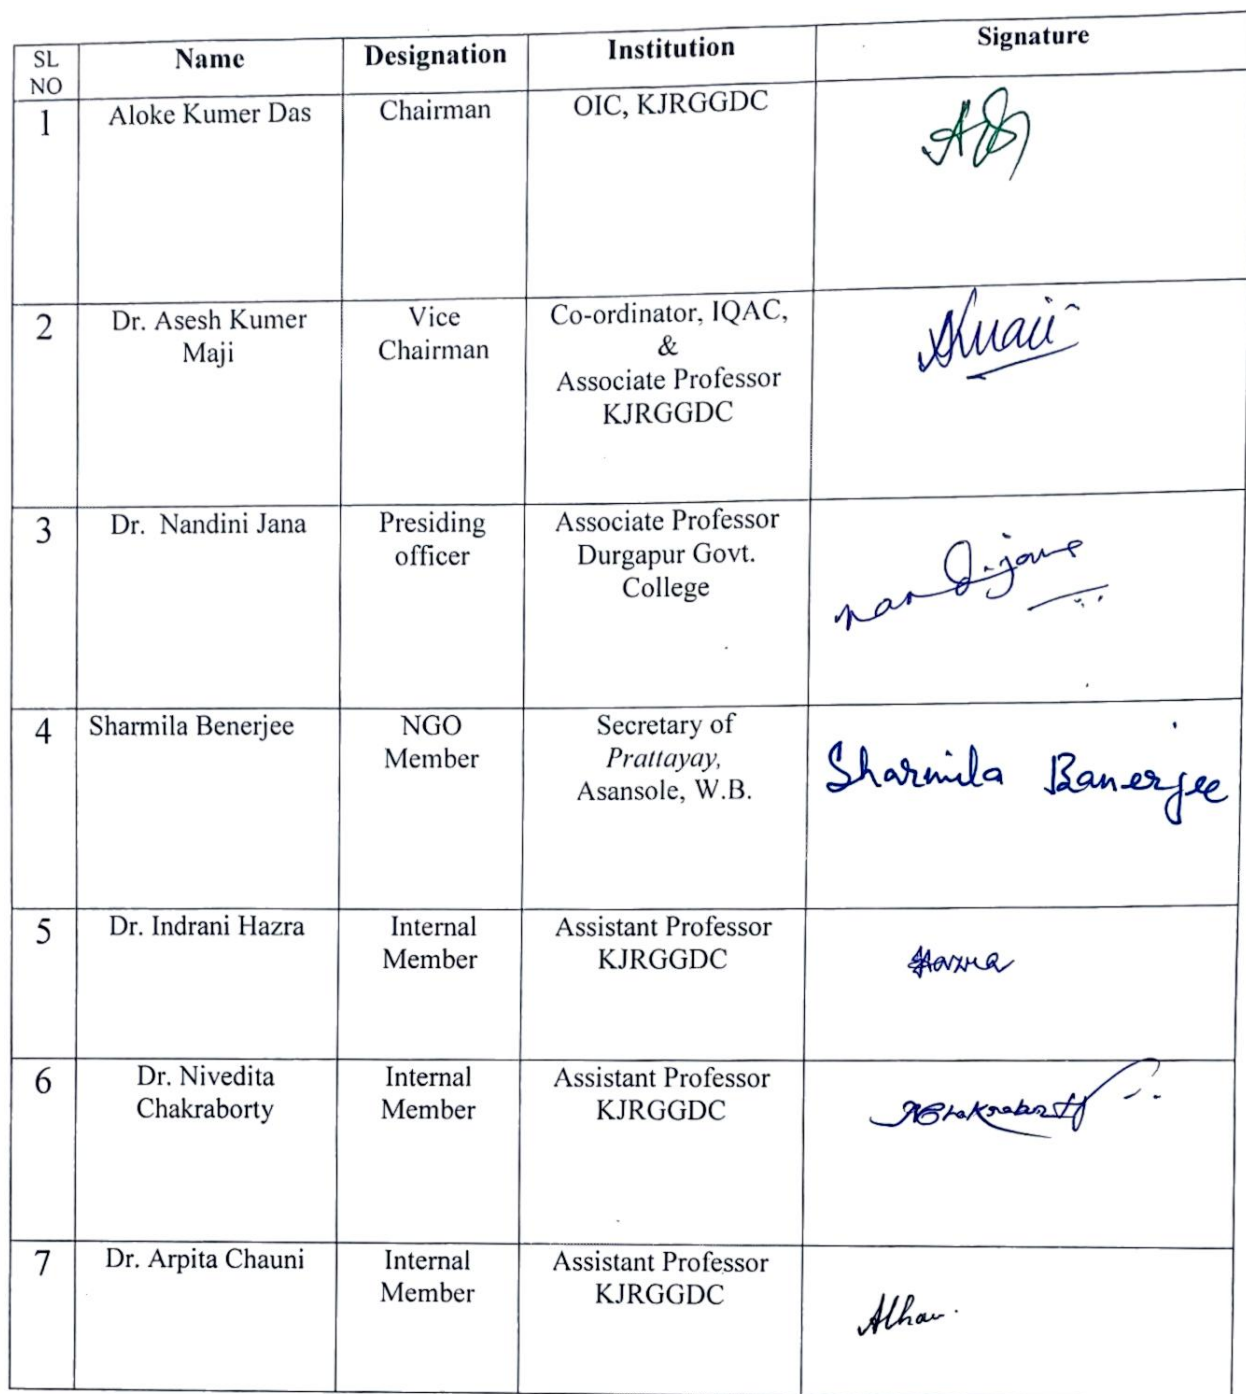 SL
NO
Name
Designation
Institution
Signature
1
Aloke Kumer Das
Chairman
OIC, KJRGGDC
2
Dr. Asesh Kumer
Maji
Vice
Chairman
Co-ordinator, IQAC,
&
Associate Professor
KJRGGDC
3
Dr. Nandini Jana
Presiding
officer
Associate Professor
Durgapur Govt.
College
4
Sharmila Benerjee
NGO
Member
Secretary of
Prattayay,
Asansole, W.B.
Sharmila Banerjee
5
Dr. Indrani Hazra
Internal
Member
Assistant Professor
KJRGGDC
Hazra
6
Dr. Nivedita
Chakraborty
Internal
Member
Assistant Professor
KJRGGDC
NChakraborty
7
Dr. Arpita Chauni
Internal
Member
Assistant Professor
KJRGGDC